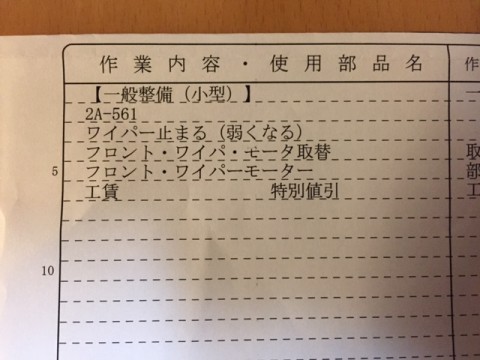 作業内容・使用部品名
作
【一般整備（小型）】
一
2A-561
ワイパー止まる（弱くなる）
フロント・ワイパ・モータ取替
取
5
フロント・ワイパーモーター
部
工賃 特別値引
工
10